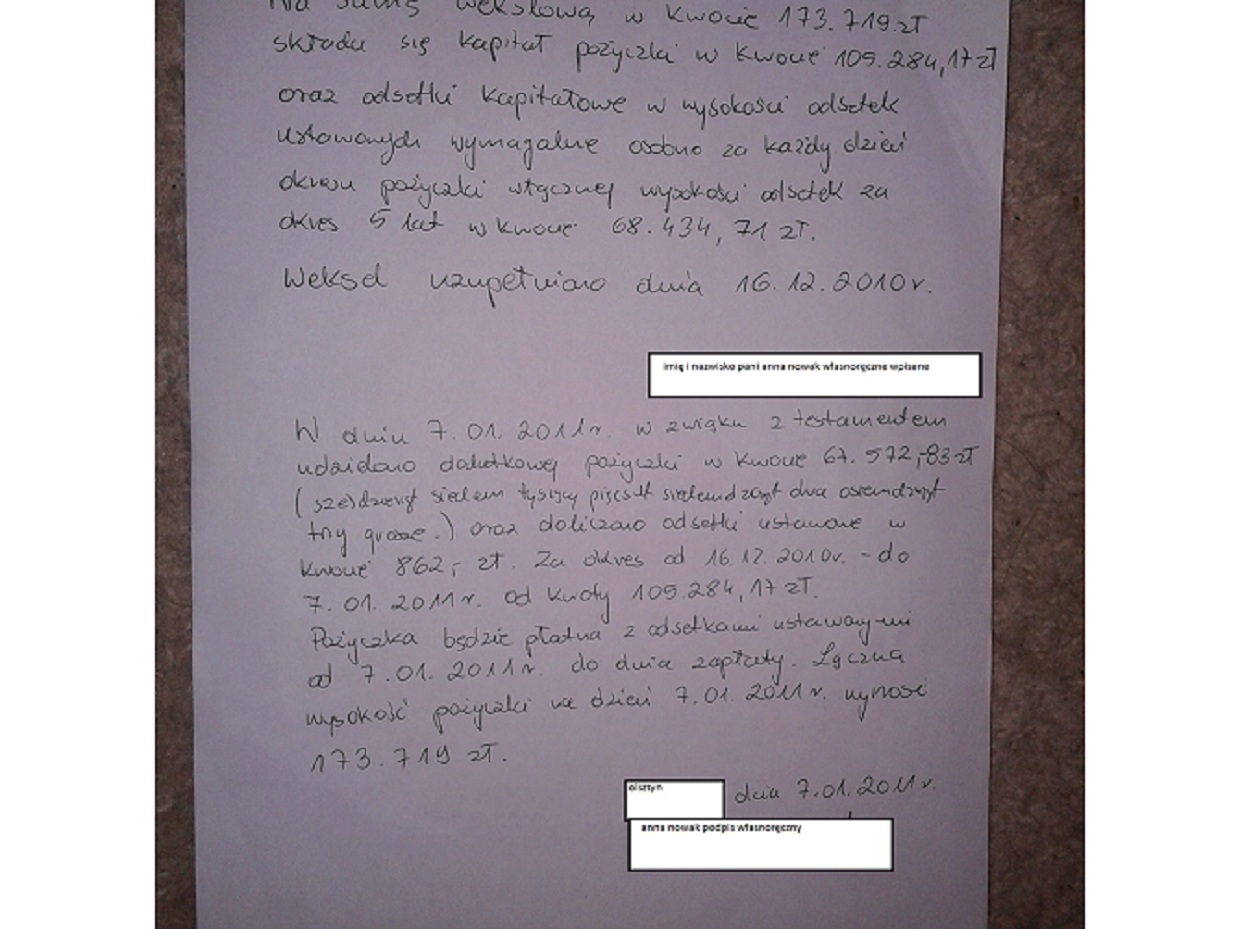 Na sumę wekslową w kwocie 173.719 zł
składa się kapitał pożyczki w kwocie 105.284,17 zł
oraz odsetki kapitałowe w wysokości odsetek
ustawowych wymagalne osobno za każdy dzień
okresu pożyczki włącznej wysokości odsetek za
okres 5 lat w kwocie 68.434,71 zł.
Weksel uzupełniono dnia 16.12.2010 r.
imię i nazwisko pani anna nowak własnoręczne wpisane
W dniu 7.01.2011 r. w związku z testamentem
udzielono dodatkowej pożyczki w kwocie 67.572,-83 zł
(sześćdziesiąt siedem tysięcy pięćset siedemdziesiąt dwa osiemdziesiąt
trzy grosze.) oraz doliczono odsetki ustawowe w
kwocie 862,- zł. Za okres od 16.12.2010 r. - do
7.01.2011 r. od kwoty 105.284,17 zł.
Pożyczka będzie płatna z odsetkami ustawowymi
od 7.01.2011 r. do dnia zapłaty. Łączna
wysokość pożyczki na dzień 7.01.2011 r. wynosi
173.719 zł.
olsztyn dnia 7.01.2011 r.
anna nowak podpis własnoręczny